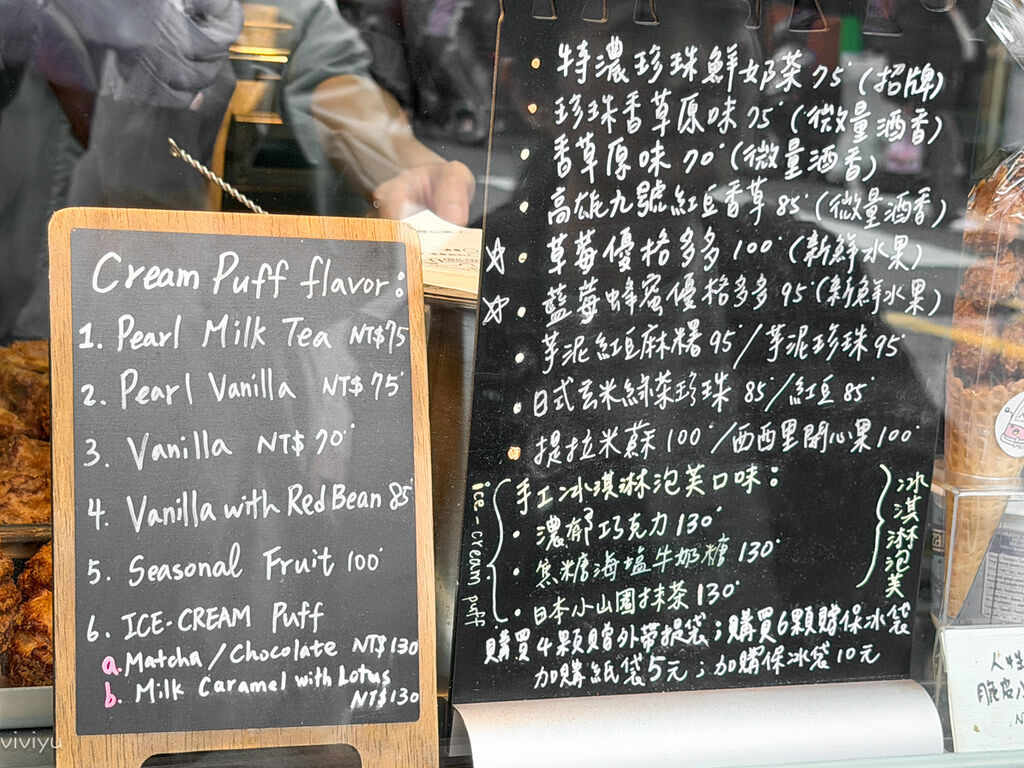 Cream Puff flavor:
1. Pearl Milk Tea NT$75
2. Pearl Vanilla NT$75
3. Vanilla NT$70
4. Vanilla with Red Bean 85
5. Seasonal Fruit 100
6. ICE-CREAM Puff
a. Matcha/Chocolate NT$130
b. Milk Caramel with Lotus
NT$130
特濃珍珠鮮奶茶75(招牌)
珍珠香草原味75(微量酒香)
香草原味70(微量酒香)
高雄九號紅豆香草85(微量酒香)
☆草莓優格多多100(新鮮水果)
☆藍莓蜂蜜優格多多95(新鮮水果)
芋泥紅豆麻糬95/芋泥珍珠95
日式玄米綠茶珍珠85/紅豆85
提拉米蘇100/西西里開心果100
ice-cream puff
手工冰淇淋泡芙口味:
濃郁巧克力130
焦糖海塩牛奶糖130
日本小山園抹茶130
冰淇淋泡芙
購買4顆贈外帶提袋;購買6顆贈保冰袋
加購紙袋5元;加購保冰袋10元
viviyu